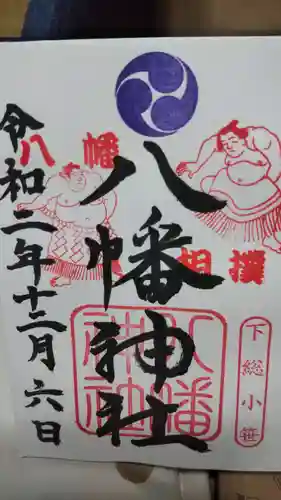 八幡
相撲
八幡神社
下総小笹
八幡神社
令和二年十二月六日